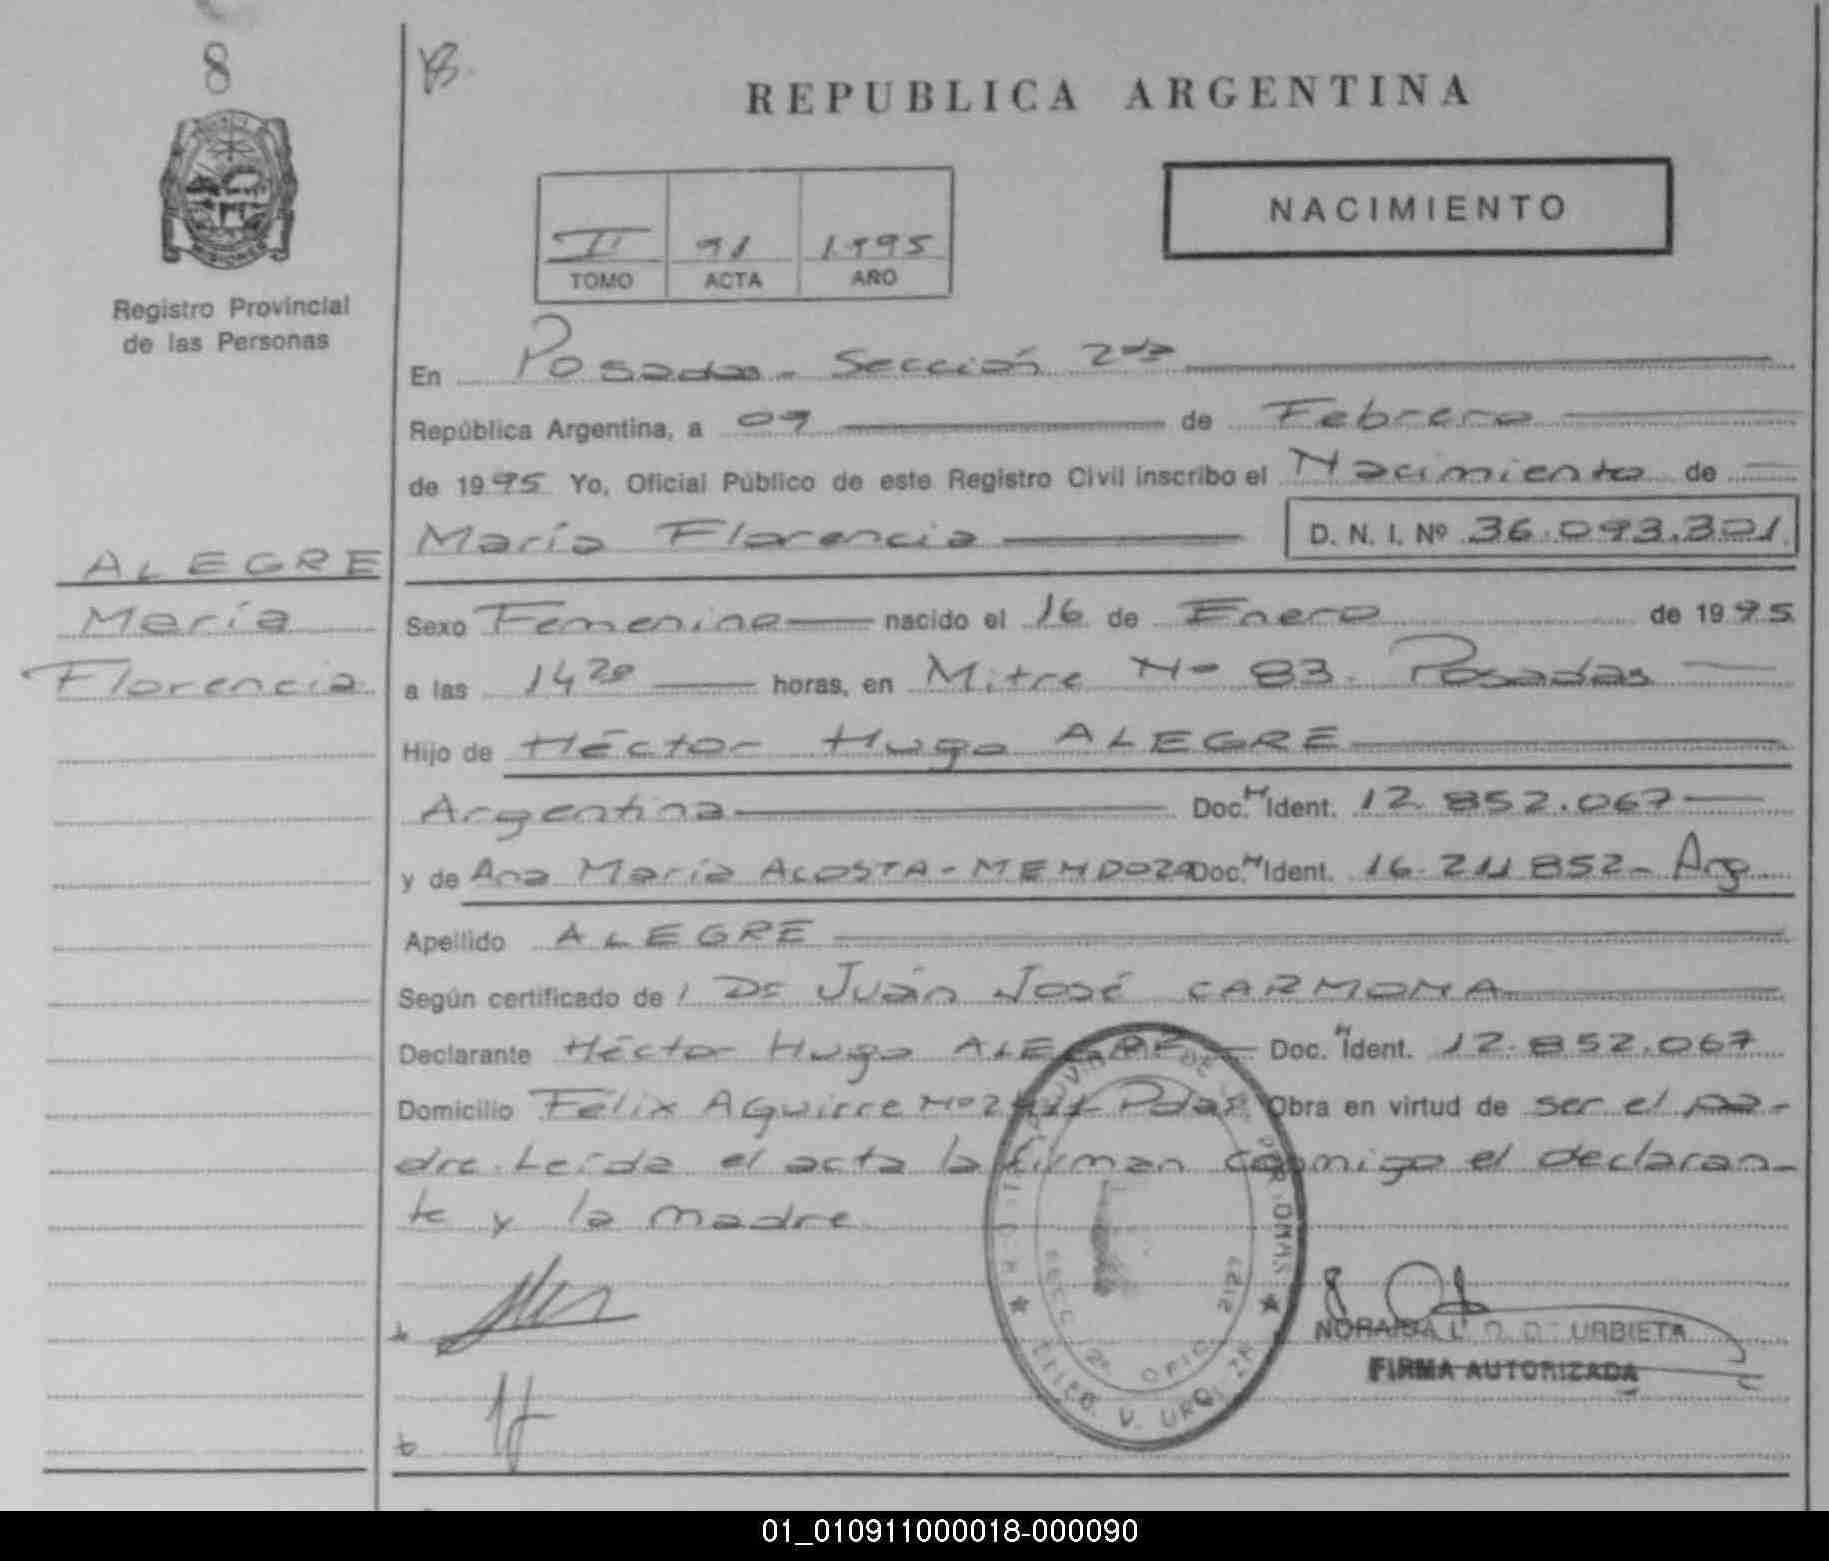 8
REPUBLICA ARGENTINA
NACIMIENTO
II 91 1995
TOMO ACTA AÑO
Registro Provincial
de las Personas
En Posadas - Sección 2da
República Argentina, a 09 de Febrero
de 1995 Yo, Oficial Público de este Registro Civil inscribo el Nacimiento de
María Florencia D. N. I. Nº 36.093.301
ALEGRE
María
Florencia
Sexo Femenino nacido el 16 de Enero de 1995
a las 14 20 horas, en Mitre Nº 83. Posadas
Hijo de Héctor Hugo ALEGRE
Argentina Doc. N Ident. 12.852.067
y de Ana María ACOSTA - MENDOZA Doc. N Ident. 16.211.852 - Arg.
Apellido ALEGRE
Según certificado de Dr Juán José CARMONA
Declarante Héctor Hugo ALEGRE Doc. N Ident. 12.852.067
Domicilio Félix Aguirre Nº Pdas. Obra en virtud de ser el pa-
dre. Leída el acta la firman conmigo el declaran-
te y la madre.
SECC. 2º OFIC. 2127
V. URQUIZA
URBIETA
FIRMA AUTORIZADA
01_010911000018-000090